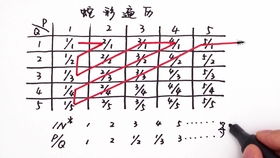 蛇形遍历
P 1 2 3 4 5
Q
1 1/1 2/1 3/1 4/1 5/1
2 1/2 2/2 3/2 4/2 5/2
3 1/3 2/3 3/3 4/3 5/3
4 1/4 2/4 3/4 4/4 5/4
5 1/5 2/5 3/5 4/5 5/5
IN* 1 2 3 4 5 ······
P/Q 1 2 1/2 1/3 3 ······